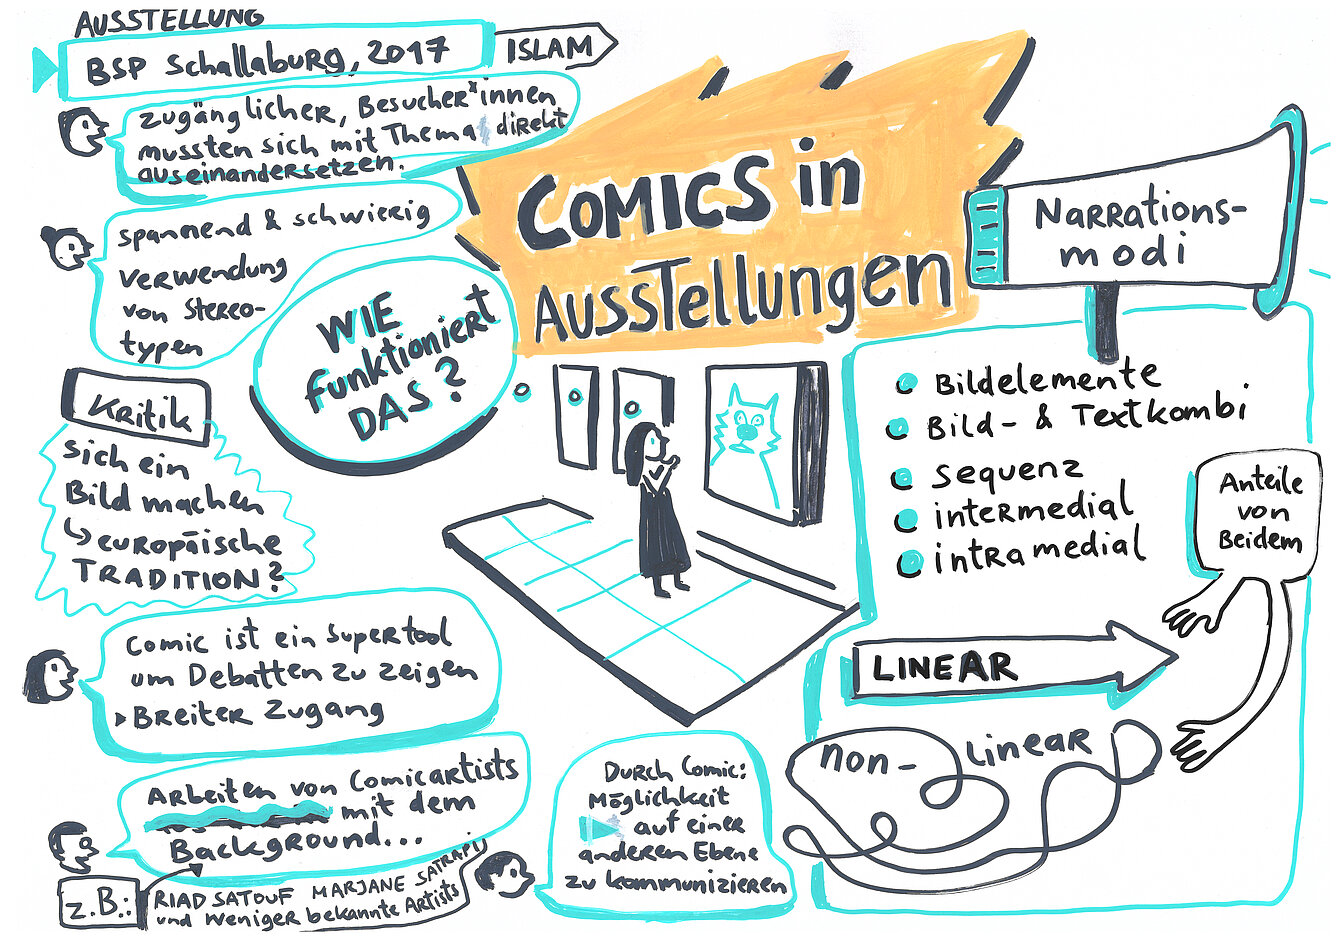 AUSSTELLUNG
BSP Schallaburg, 2017
ISLAM
zugänglicher, Besucher*innen
mussten sich mit Thema direkt
auseinandersetzen.
spannend & schwierig
Verwendung
von Stereo-
typen
WIE
funktioniert
DAS?
Kritik
sich ein
Bild machen
↳ europäische
TRADITION?
Comic ist ein Supertool
um Debatten zu zeigen
▸Breiter Zugang
Arbeiten von Comicartists
mit dem
Background...
z.B.:
RIAD SATOUF MARJANE SATRAPI
und weniger bekannte Artists
COMICS in
Ausstellungen
Durch Comic:
Möglichkeit
auf einer
anderen Ebene
zu kommunizieren
Narrations-
modi
Bildelemente
Bild- & Textkombi
Sequenz
intermedial
intramedial
Anteile
von
Beidem
LINEAR
non-linear